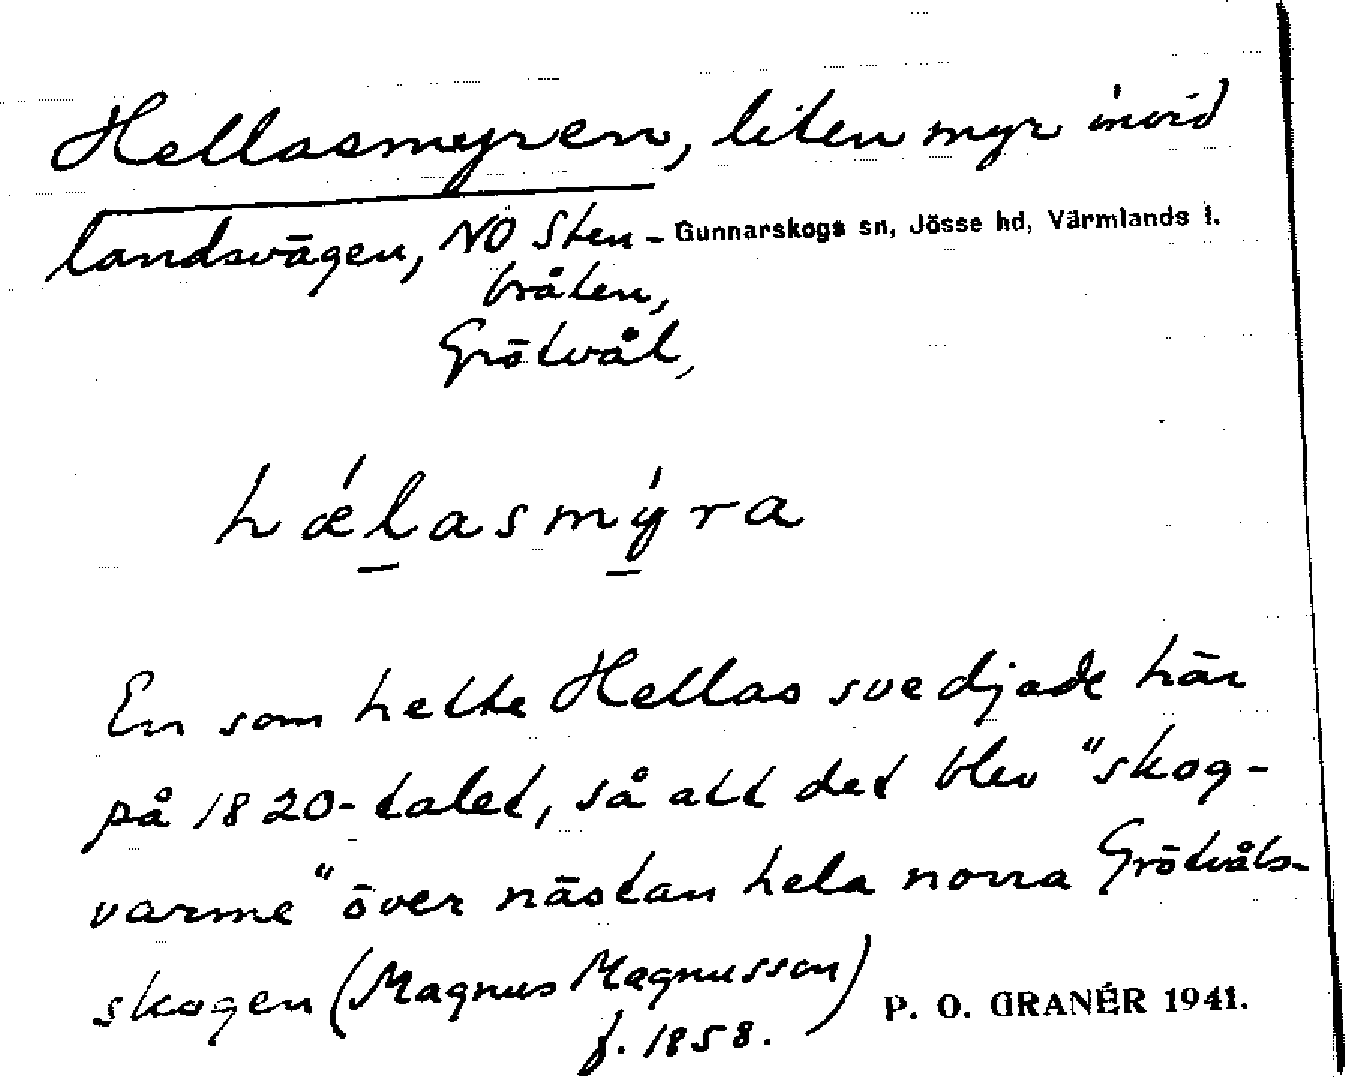 Hellasmyren, liten myr invid
landsvägen, NO Sten-
bråten,
Grötvål,
Gunnarskogs sn, Jösse hd, Värmlands l.
hǽlasmýra
En som hette Hellas svedjade här
på 1820-talet, så att det blev "skog-
varme" över nästan hela norra Grötvåls-
skogen (Magnus Magnusson)
f. 1858.
P. O. GRANÉR 1941.